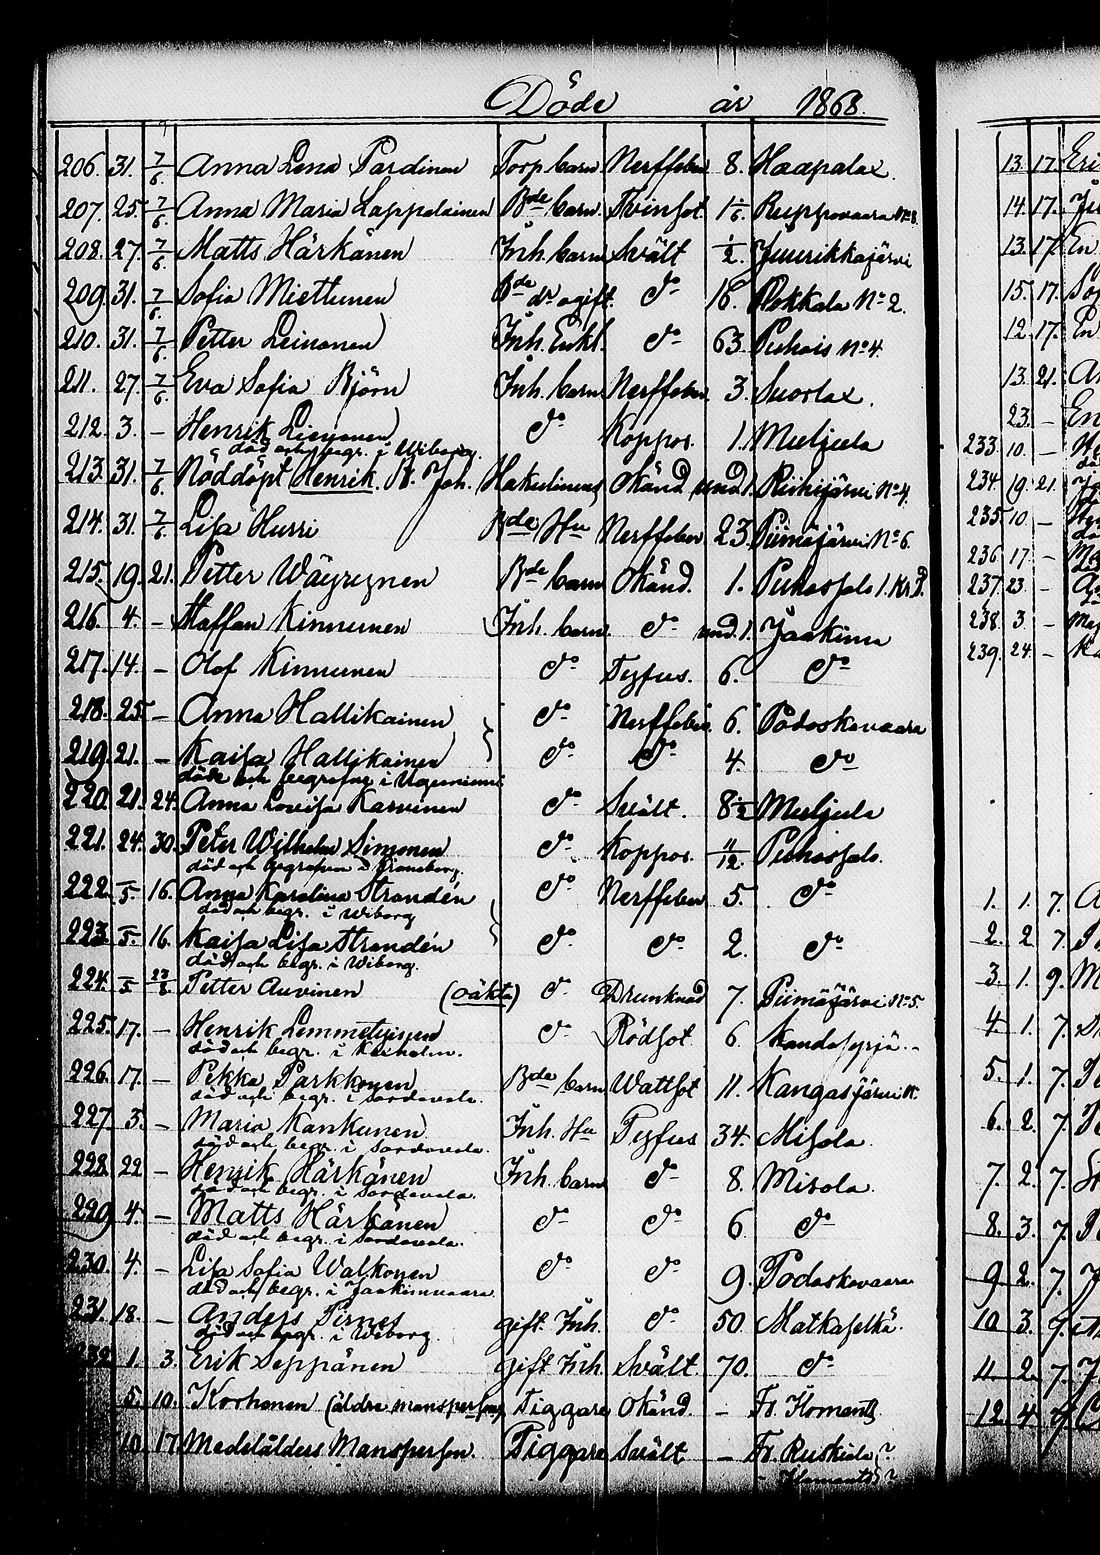 Döde år 1868.
206. 31. 7/6. Anna Lena Pardinen Torp. barn Nerffeber 8. Haapalax.
207. 25. 7/6. Anna Maria Lappalainen Bde barn. Tvinsot. 1 1/6. Ruppovaara No 8.
208. 27. 7/6. Matts Härkänen Inh. barn Svält 1/2. Juurikkajärvi
209. 31. 7/6. Sofia Miettunen Bde dr ogift. do 16. Rokkala No 2.
210. 31. 7/6. Petter Leinonen Inh. Enkl. do 63. Puhois No 4.
211. 27. 7/6. Eva Sofia Björn Inh. barn Nerffeber 3. Suorlax.
212. 3. – Henrik do Koppor. 1. Muljula
död och begr. i Wiborg.
213. 31. 7/6. Nöddöpt Henrik. St. Joh. Hakulinens Okänd und 1. Riihijärvi No 4.
214. 31. 7/6. Lisa Hurri Bde Hu Nerffeber 23. Piimäjärvi No 6.
215. 19. 21. Petter Wäyrynen Bde barn Okänd. 1. Puhossalo 1.
216. 4. – Staffan Kinnunen Inh. barn. do und. 1. Jaakima
217. 14. – Olof Kinnunen do Tyfus. 6. do
218. 25. – Anna Hallikainen do Nerffeber 6. Potoskavaara
219. 21. – Kaisa Hallikainen do do 4. do
döde och begrafne i Uguniemi
220. 21. 24. Anna Lovisa Karvinen do Svält. 8 1/2 Muljula
221. 24. 30. Peter Wilhelm Simonen do Koppor. 11/12. Puhossalo.
död och begrafven i Kronoborg.
222. – 5. 16. Anna Karolina Strandén do Nerffeber 5. do
död och begr. i Wiborg
223. – 5. 16. Kaisa Lisa Strandén do do 2. do
död och begr. i Wiborg.
224. – 5 23/8 Petter Auvinen (oäkta) do Drunknad 7. Piimäjärvi No 5.
225. 17. – Henrik Lemmetyinen do Rödsot 6. Kandesyrjä.
död och begr. i Kexholm.
226. 17. – Pekka Parkkonen Bde barn Wattsot 11. Kangasjärvi
död och begr. i Sordavala.
227. 3. – Maria Kankunen Inh. Hu Tyfus 34. Misola.
död och begr. i Sordavala.
228. 22 – Henrik Härkänen Inh. barn do 8. Misola.
död och begr. i Sordavala.
229. 4. – Matts Härkänen do do 6 do
död och begr. i Sordavala.
230. 4. – Lisa Sofia Walkonen do do 9. Potoskavaara
död och begr. i Jaakimvaara
231. 18. – Anders Pirnes gift Inh. do 50. Matkaselkä.
död och begr. i Wiborg.
232 1. 3. Erik Seppänen gift Inh Svält. 70. do
5. 10. Korhonen (äldre mansperson) Tiggare Okänd. – Fr. Ilomants.
10. 17 Medelålders Mansperson. Tiggare Svält – Fr. Ruskiala?
– Ilomants?
13. 17.
14. 17.
13. 17. En
15. 17.
12. 17. En
13. 21.
23. – En
233. 10. –
234. 19. 21.
235. 10 –
236. 17 –
237. 23 –
238. 3 –
239. 24. –
1. 1. 7.
2. 2. 7.
3. 1. 9.
4. 1. 7.
5. 1. 7.
6. 2. 7.
7. 2. 7.
8. 3. 7.
9 2. 7.
10 3. 7.
11. 2. 7.
12. 4. 7.